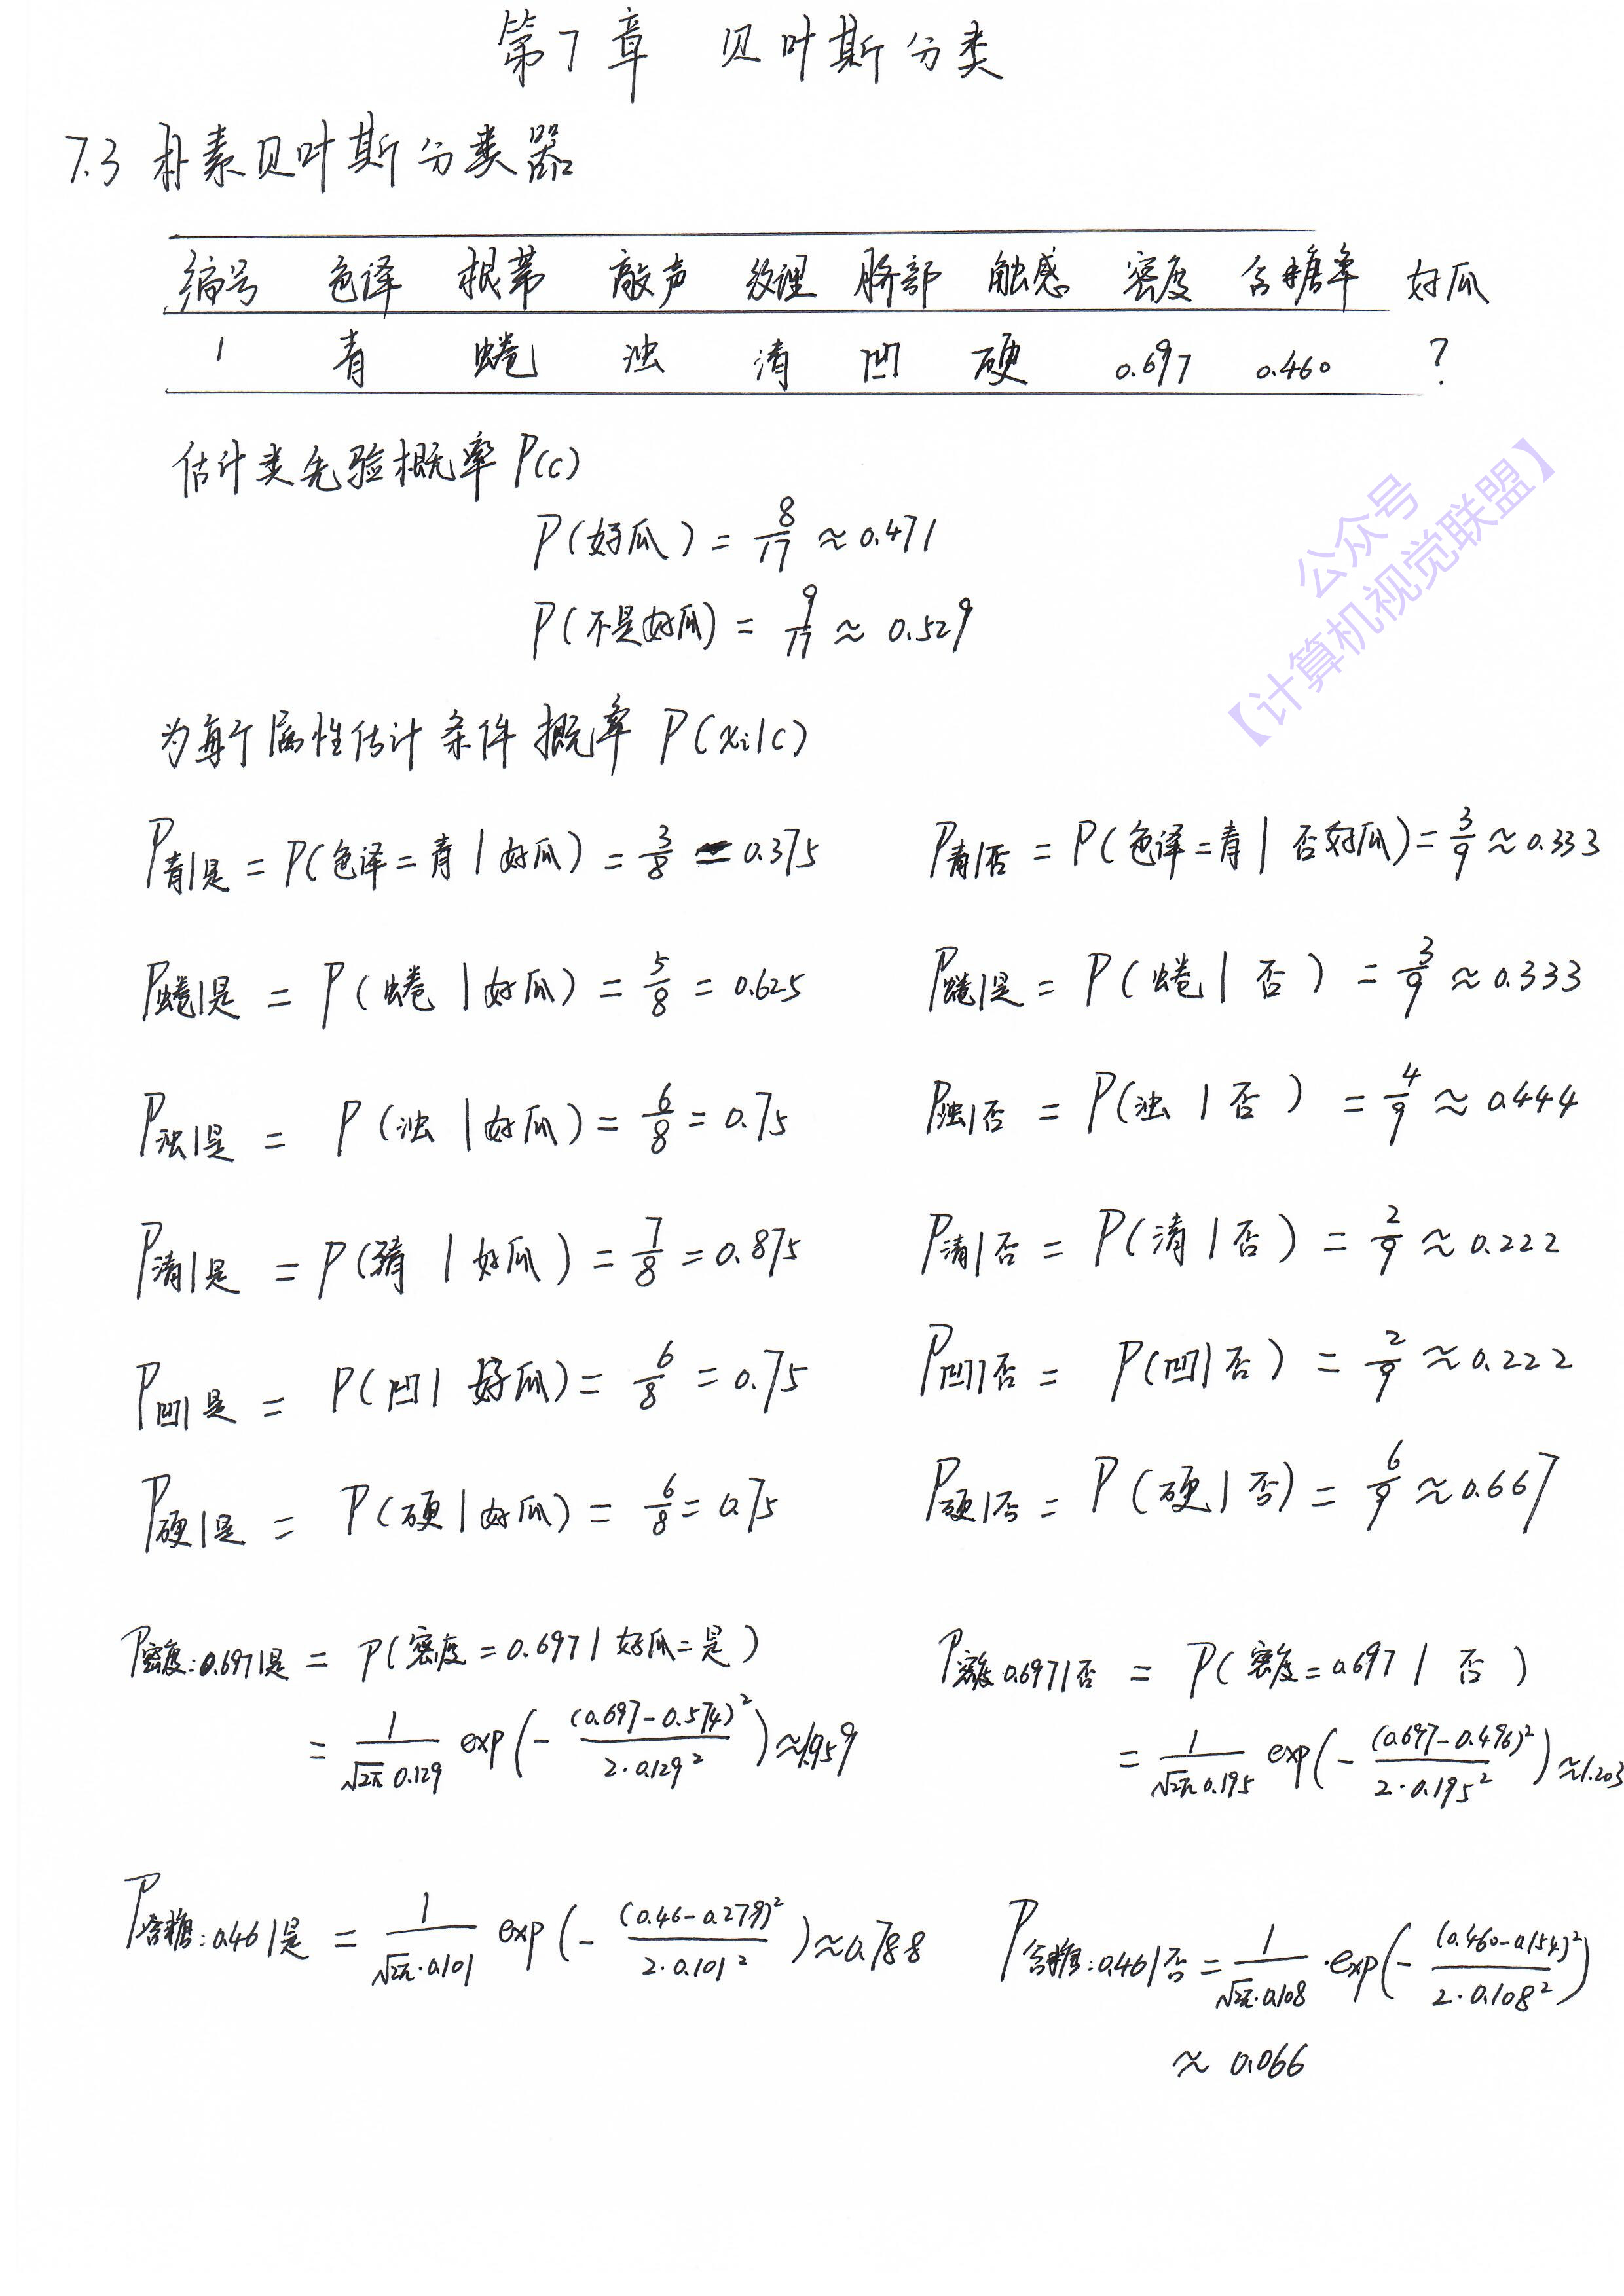 第7章 贝叶斯分类
7.3 朴素贝叶斯分类器
编号 色泽 根蒂 敲声 纹理 脐部 触感 密度 含糖率 好瓜
1 青 蜷 浊 清 凹 硬 0.697 0.460 ?
估计类先验概率 P(c)
P(好瓜) = 8/17 ≈ 0.471
P(不是好瓜) = 9/17 ≈ 0.529
为每个属性估计条件概率 P(xi|c)
P青|是 = P(色泽=青|好瓜) = 3/8 = 0.375 P青|否 = P(色泽=青|否好瓜) = 3/9 ≈ 0.333
P蜷|是 = P(蜷|好瓜) = 5/8 = 0.625 P蜷|是 = P(蜷|否) = 3/9 ≈ 0.333
P浊|是 = P(浊|好瓜) = 6/8 = 0.75 P浊|否 = P(浊|否) = 4/9 ≈ 0.444
P清|是 = P(清|好瓜) = 7/8 = 0.875 P清|否 = P(清|否) = 2/9 ≈ 0.222
P凹|是 = P(凹|好瓜) = 6/8 = 0.75 P凹|否 = P(凹|否) = 2/9 ≈ 0.222
P硬|是 = P(硬|好瓜) = 6/8 = 0.75 P硬|否 = P(硬|否) = 6/9 ≈ 0.667
P密度:0.697|是 = P(密度=0.697|好瓜=是) P密度:0.697|否 = P(密度=0.697|否)
= 1/(√2π 0.129) exp(-(0.697-0.574)²/(2·0.129²)) ≈ 1.959 = 1/(√2π 0.195) exp(-(0.697-0.496)²/(2·0.195²)) ≈ 1.203
P含糖:0.46|是 = 1/(√2π·0.101) exp(-(0.46-0.279)²/(2·0.101²)) ≈ 0.788 P含糖:0.46|否 = 1/(√2π·0.108) ·exp(-(0.460-0.154)²/(2·0.108²))
≈ 0.066
公众号
【计算机视觉联盟】